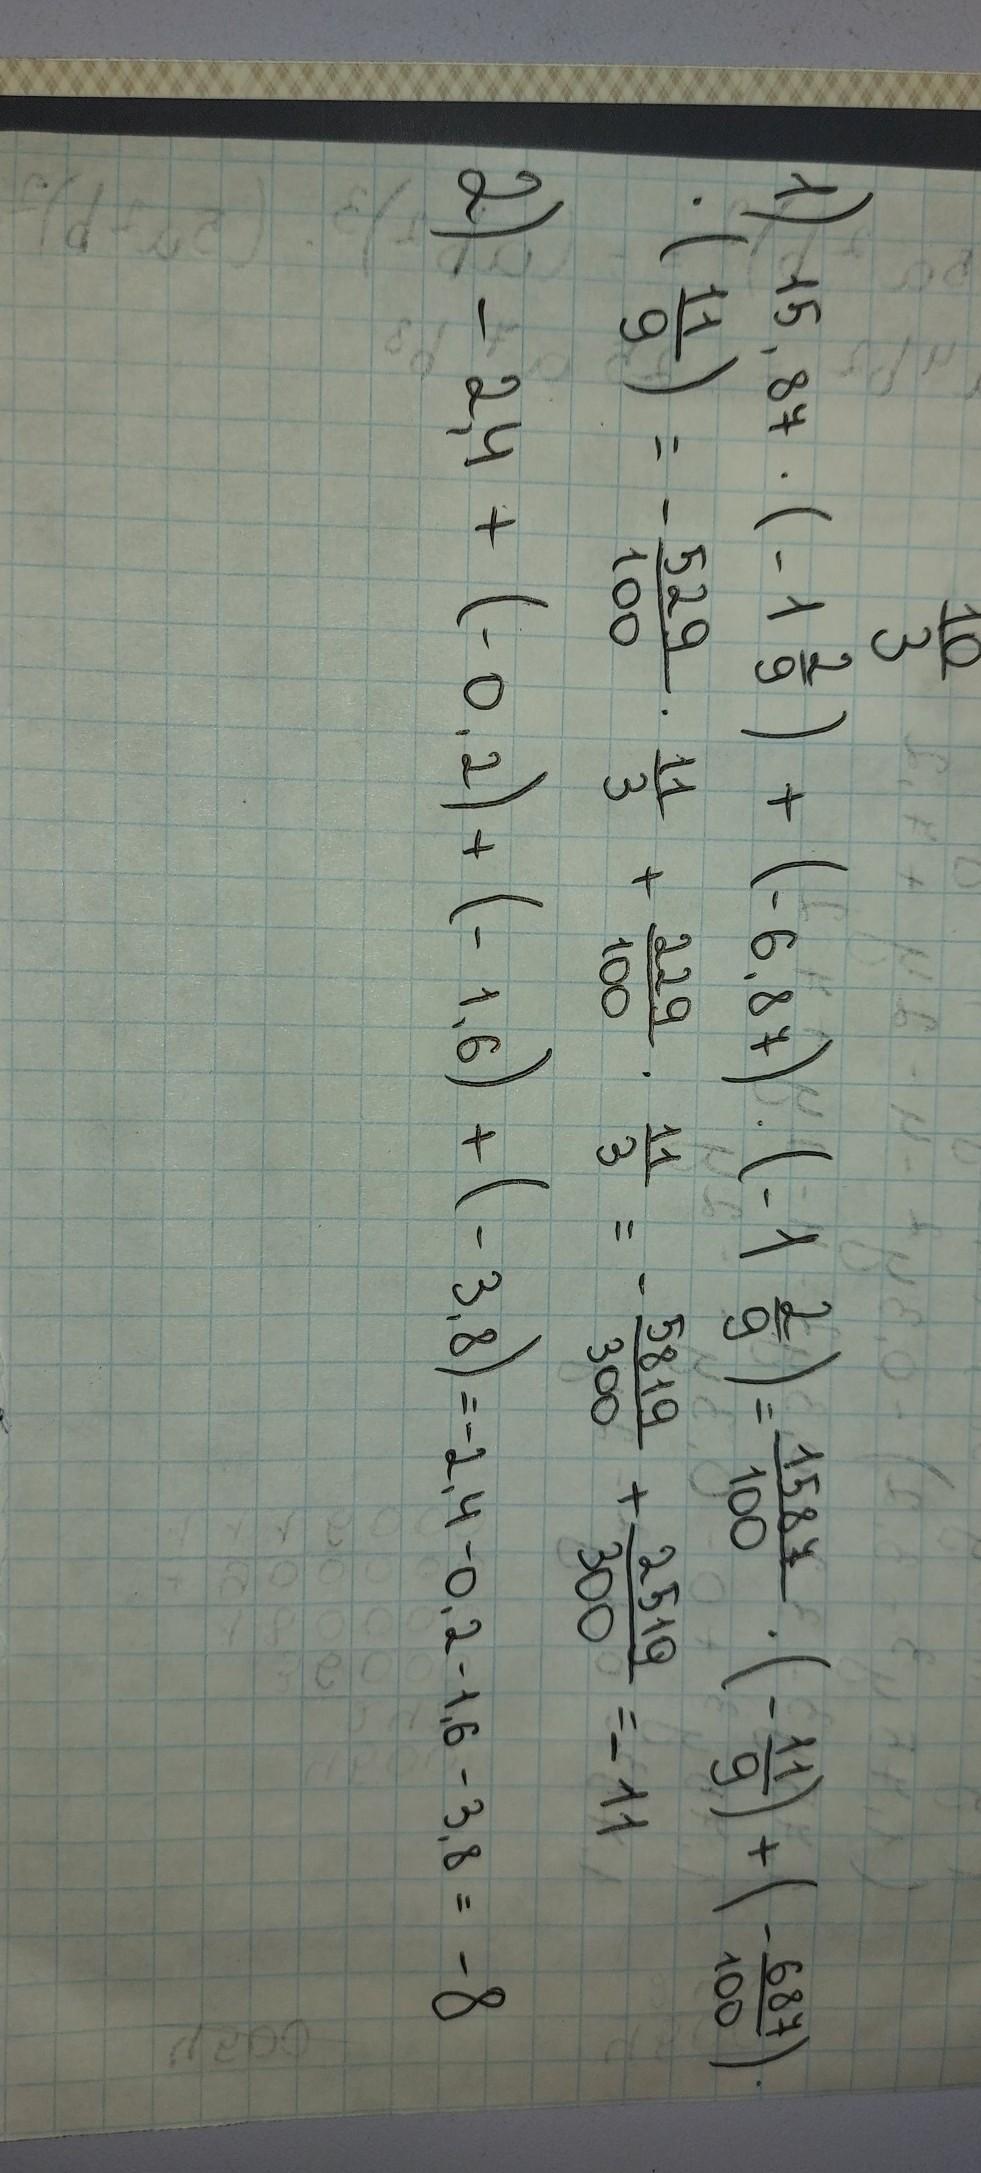 10/3
1) 15,87 · (-1 2/9) + (-6,87) · (-1 2/9) = 1587/100 · (-11/9) + (-687/100) ·
· (11/9) = - 529/100 · 11/3 + 229/100 · 11/3 = - 5819/300 + 2519/300 = -11
2) - 2,4 + (-0,2) + (-1,6) + (-3,8) = -2,4 -0,2 -1,6 -3,8 = -8